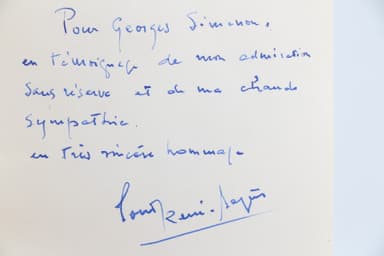 Pour Georges Simenon,
en témoignage de mon admiration
sans réserve et de ma chaude
sympathie.
en très sincère hommage